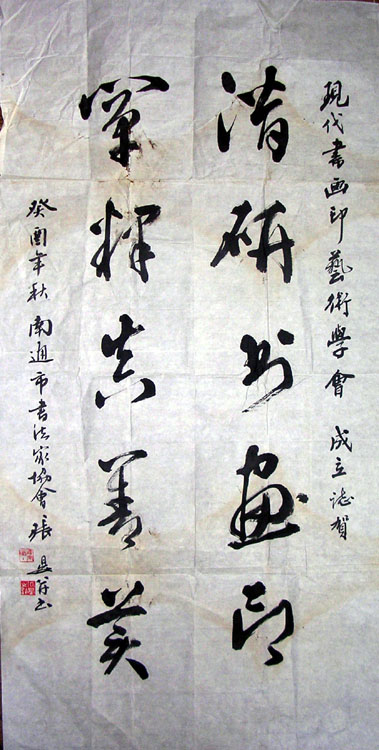 現代書画印藝術學會 成立誌賀
潛研书畫印
闡釋真善美
癸酉年秋 南通市書法家協會 張